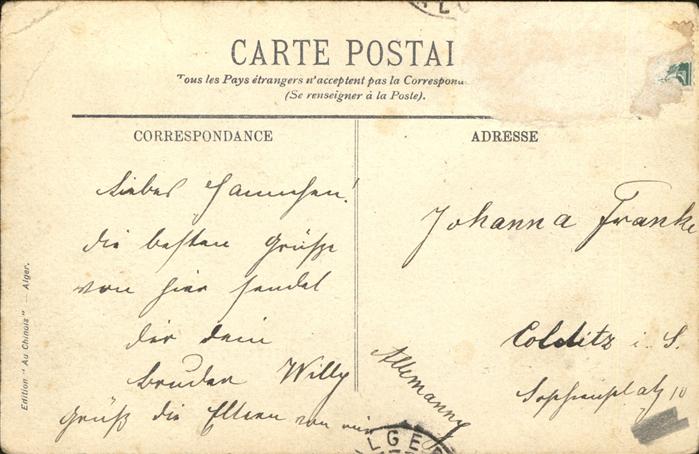 CARTE POSTAL
Tous les Pays étrangers n'acceptent pas la Correspon
(Se renseigner à la Poste).
CORRESPONDANCE
ADRESSE
Liebes Hannchen!
die besten Grüße
von hier sendet
dir dein
Bruder Willy
Grüß die Eltern von mir
Johanna Franke
Colditz i. S.
Sophienplatz 10
Allemanny
Edition "Au Chinois" — Alger.
LGE